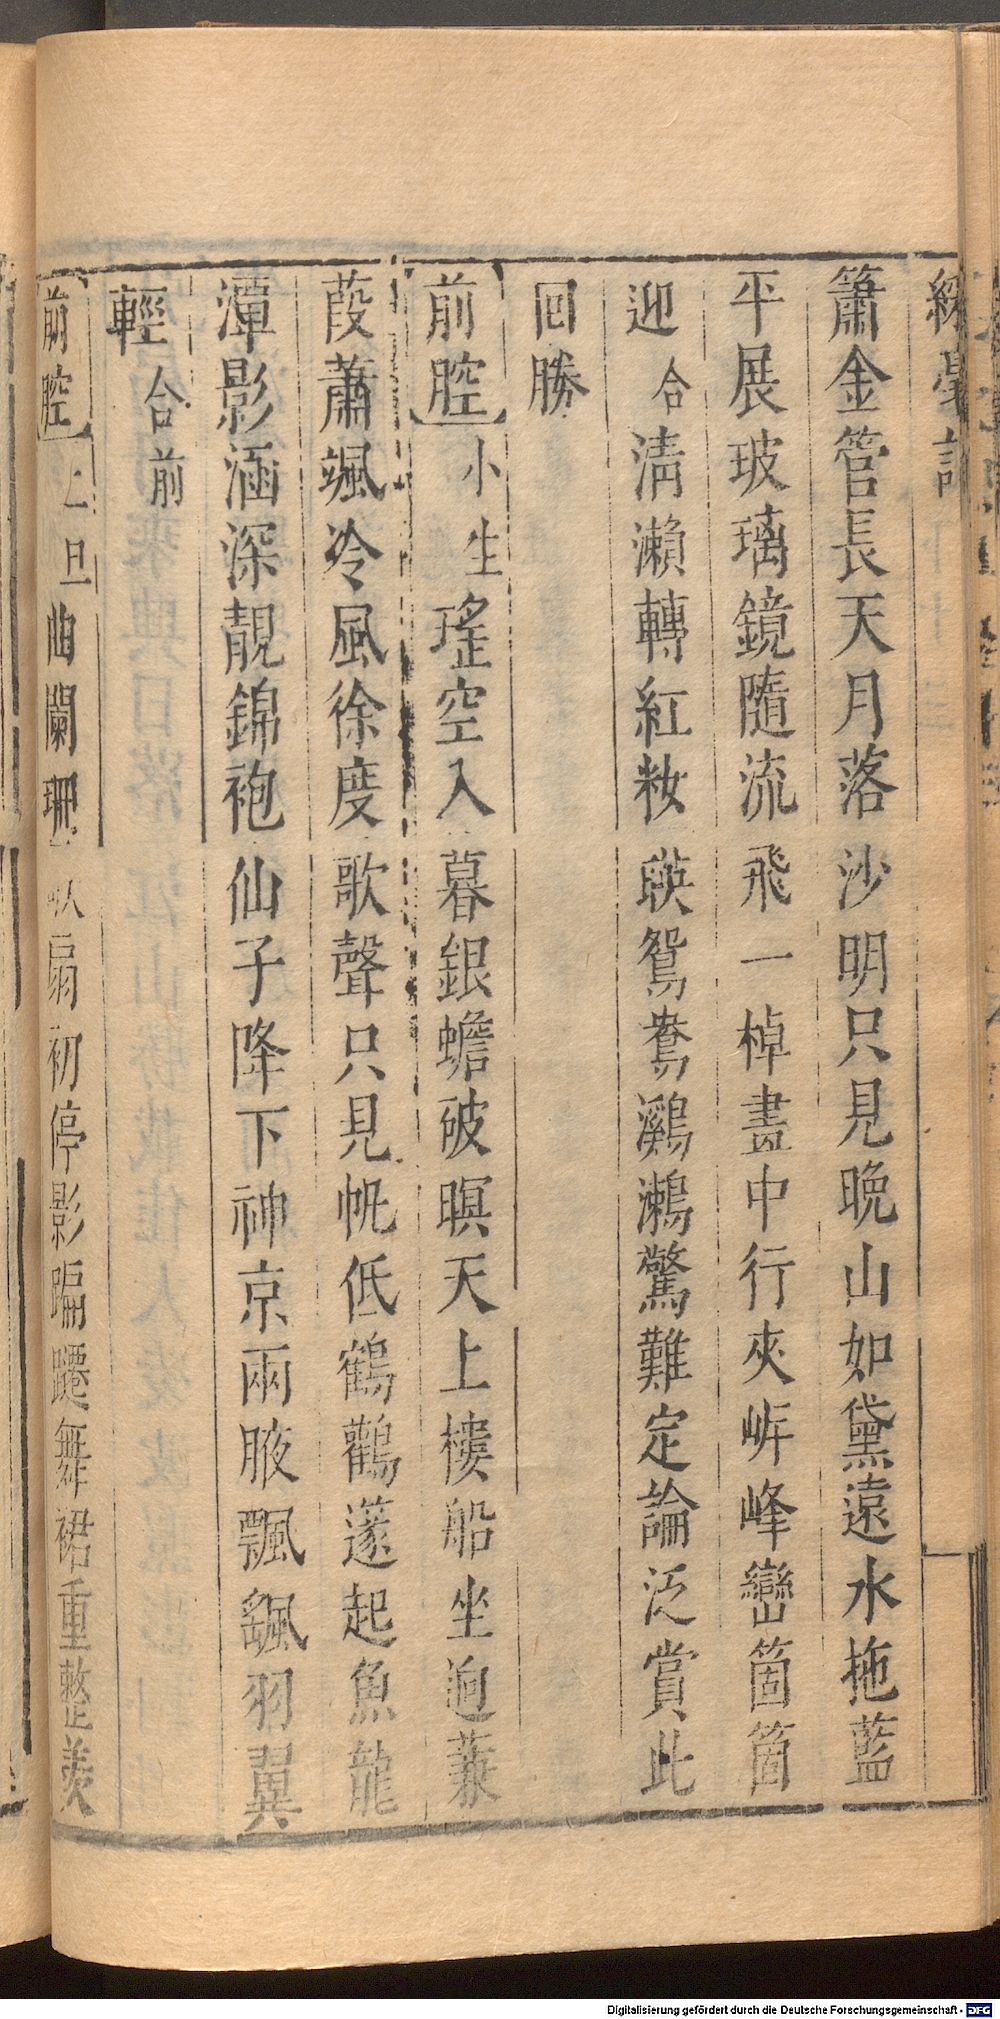 綵毫記
簫金管長天月落沙明只見晚山如黛遠水拖藍
平展玻璃鏡隨流飛一棹畫中行夾岸峰巒箇箇
迎合清瀨轉紅妝暎鴛鴦鸂鶒驚難定論泛賞此
回勝
前腔小生瑤空入暮銀蟾破暝天上樓船坐迥蒹
葭蕭颯冷風徐度歌聲只見帆低鶴鸛蓬起魚龍
潭影涵深靚錦袍仙子降下神京兩腋飄颻羽翼
輕合前
前腔旦曲闌珊歌扇初停影蹁躚舞裙重整羨
Digitalisierung gefördert durch die Deutsche Forschungsgemeinschaft - DFG